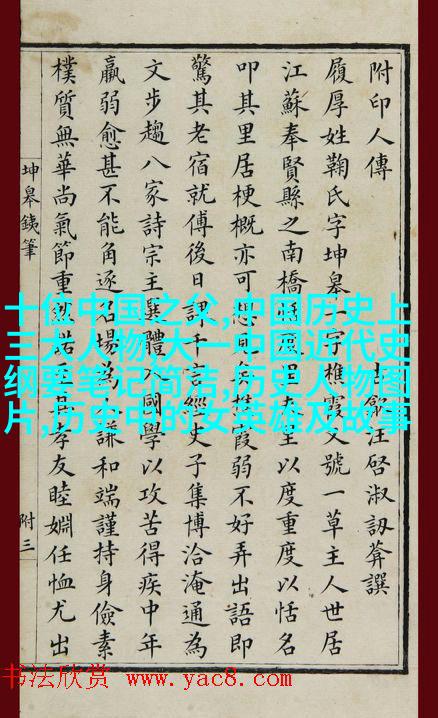 附印人傳
歙汪啓淑訒葊譔
履厚姓鞠氏字坤皋一字樵霞又號一草主人世居
江蘇奉賢縣之南橋里以度重度以恬名
叩其里居梗概亦可想見矣樵霞弱不好弄出語即
驚其老宿就傅後日課千言經史子集博洽淹通為
文步趨八家詩宗主選體入國學以攻苦得疾中年
羸弱愈甚不能角逐名場為謙和端謹持身儉素
樸質無華尚氣節重諾其孝友睦婣任恤尤出
坤皋鐵筆
附三
十位中国之父,中国历史上
三大人物,大一中国近代史
纲要笔记简洁,历史人物图
片,历史中的女英雄及故事
书法欣赏 www.yac8.com